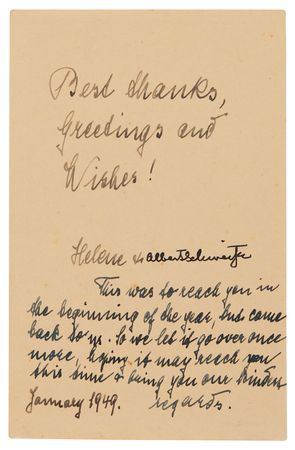 Best thanks,
Greetings and
Wishes!
Helene & Albert Schweitzer
This was to reach you in
the beginning of the year, but came
back to us. So we let it go over once
more, hoping it may reach you
this time & bring you our kindest
January 1949. regards.